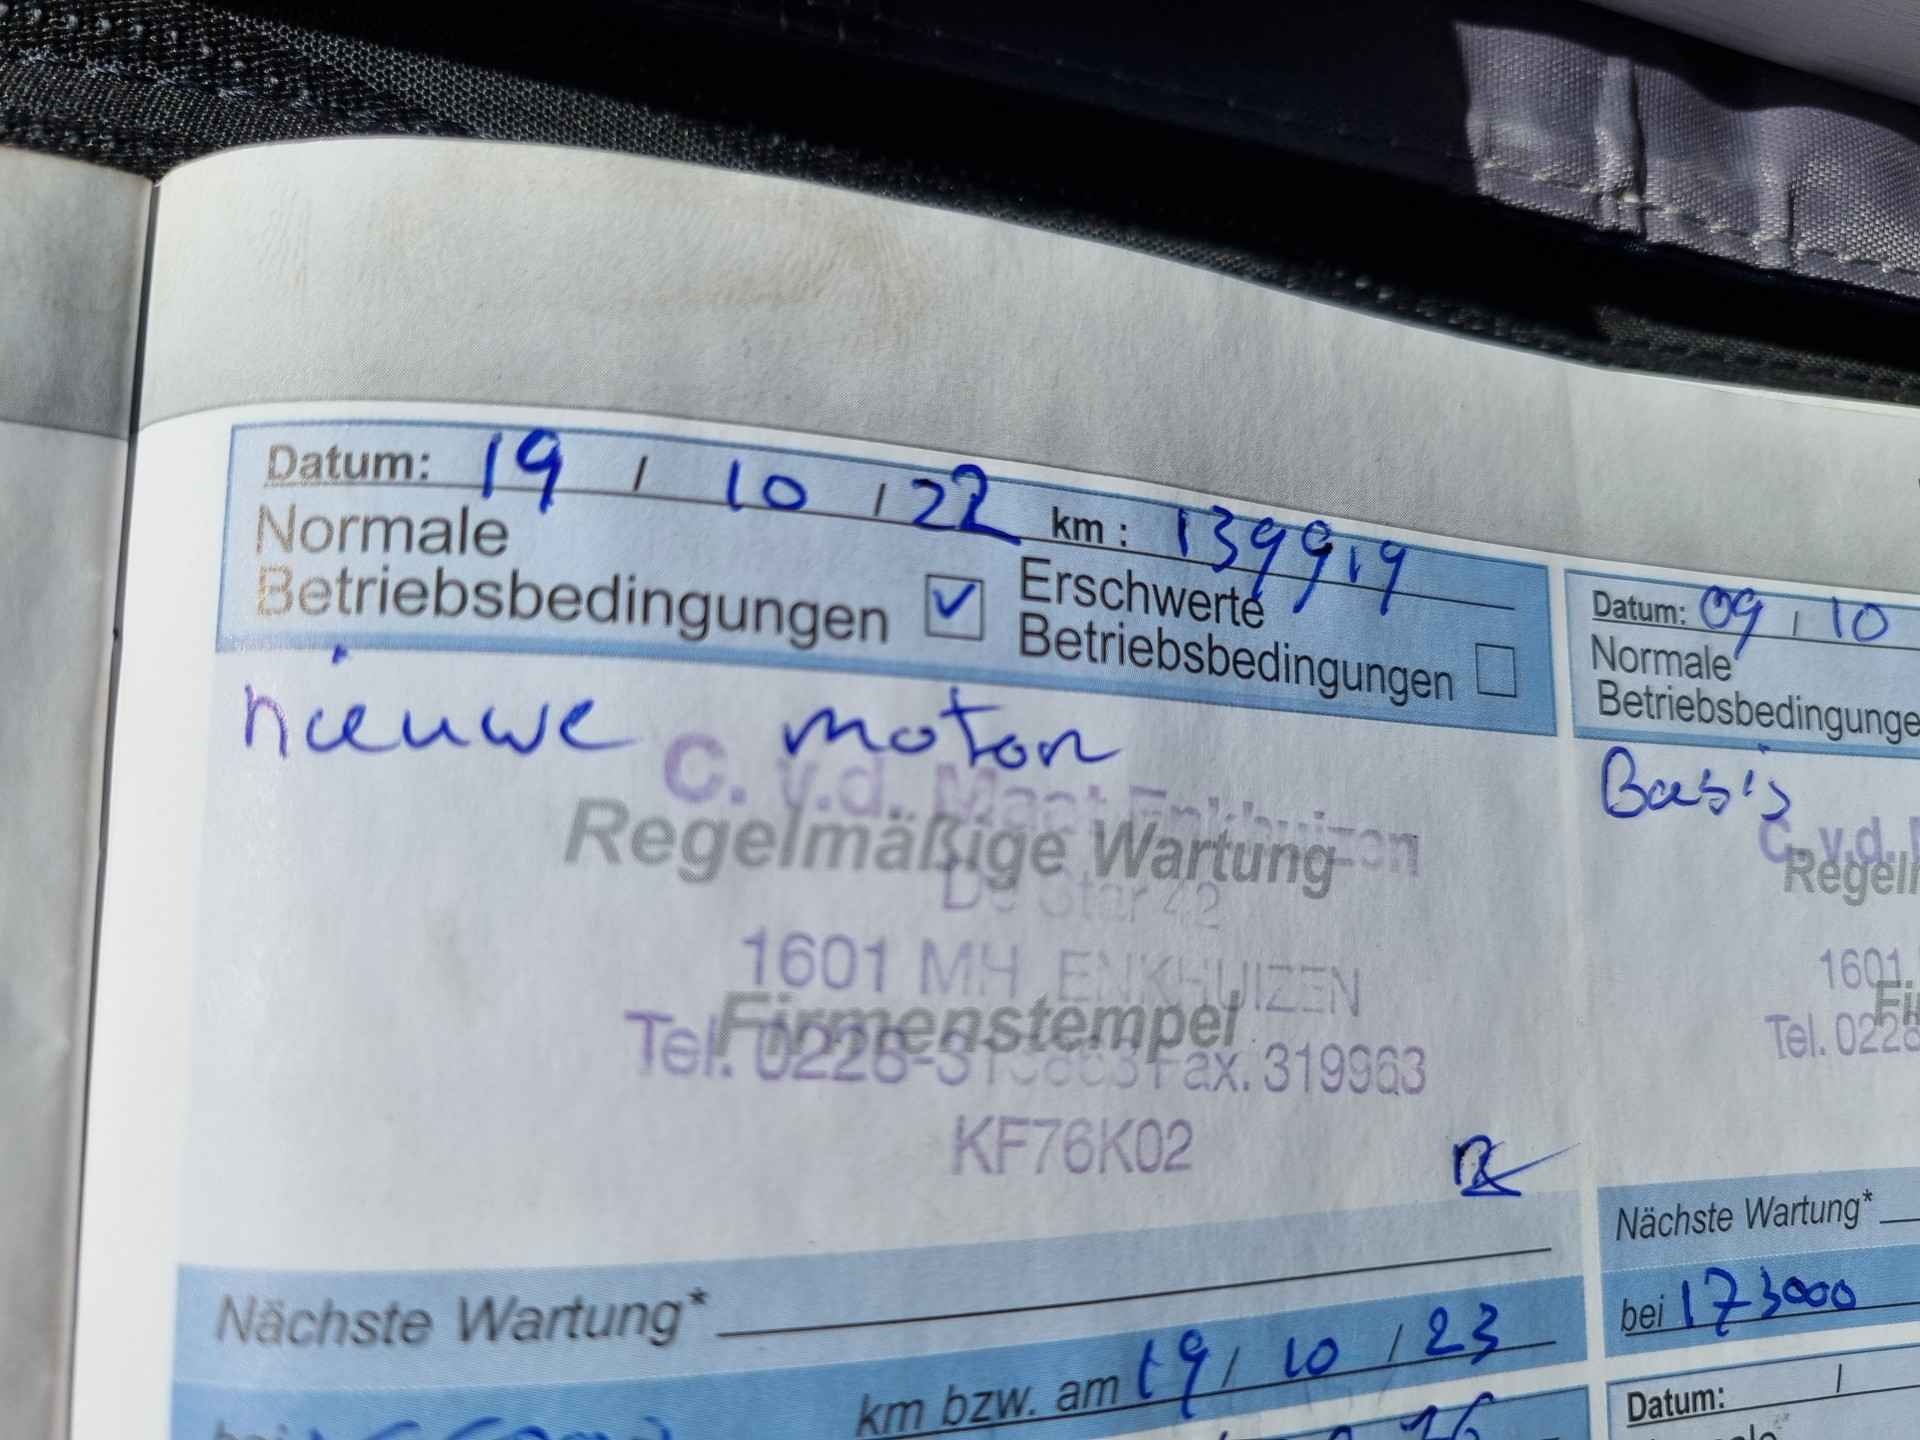 Datum: 19 / 10 / 22 km : 139919
Normale
Betriebsbedingungen
Erschwerte
Betriebsbedingungen
nieuwe motor
C. v.d. Maat Enkhuizen
Regelmäßige Wartung
De Star 42
1601 MH ENKHUIZEN
Firmenstempel
Tel. 0228-31 Fax. 319963
KF76K02
Nächste Wartung*
km bzw. am 19 / 10 / 23
Datum: 09 / 10
Normale
Betriebsbedingunge
Basis
C. v.d.
Regel
1601
Fi
Tel. 0228
Nächste Wartung*
bei 173000
Datum: /